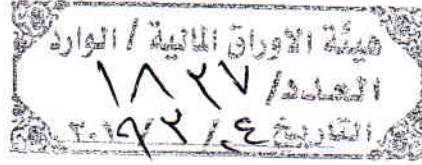 هيئة الاوراق المالية / الوارد
العدد/ ١٨٣٧
التاريخ ٤ / ٣ / ٢٠١٩